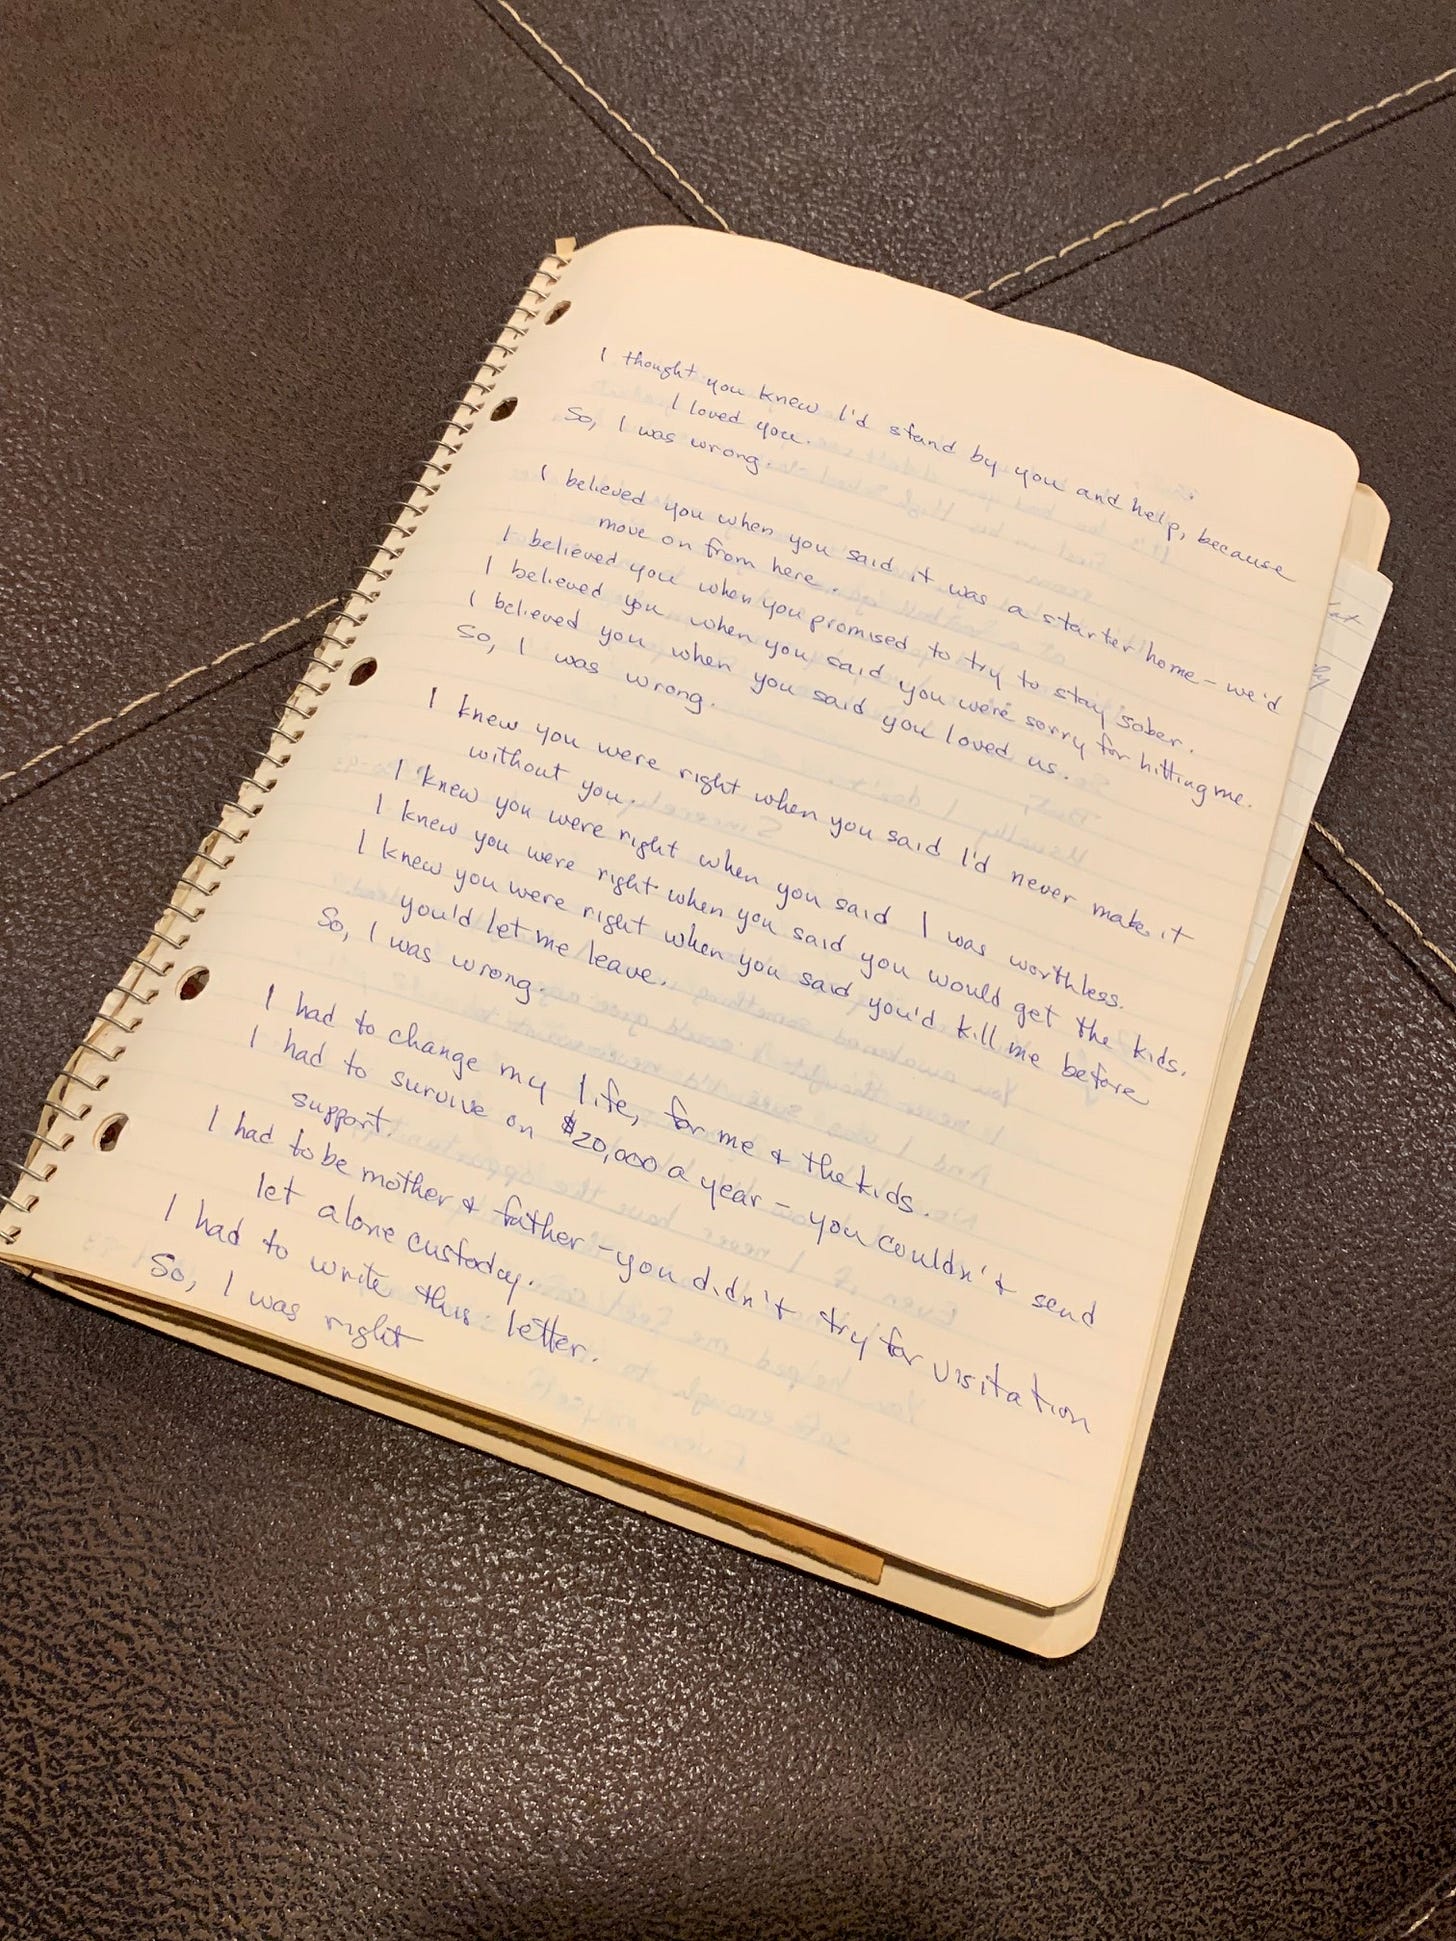 I thought you knew I'd stand by you and help, because
I loved you.
So, I was wrong.
I believed you when you said it was a starter home - we'd
move on from here.
I believed you when you promised to try to stay sober.
I believed you when you said you were sorry for hitting me.
I believed you when you said you loved us.
So, I was wrong.
I knew you were right when you said I'd never make it
without you.
I knew you were right when you said I was worthless.
I knew you were right when you said you would get the kids.
I knew you were right when you said you'd kill me before
you'd let me leave.
So, I was wrong.
I had to change my life, for me & the kids.
I had to survive on $20,000 a year - you couldn't send
support.
I had to be mother & father - you didn't try for visitation
let alone custody.
I had to write this letter.
So, I was right